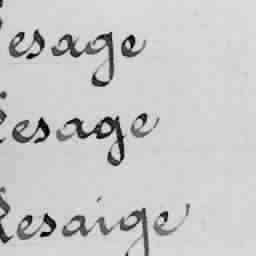 Lesage
Lesage
Lesaige